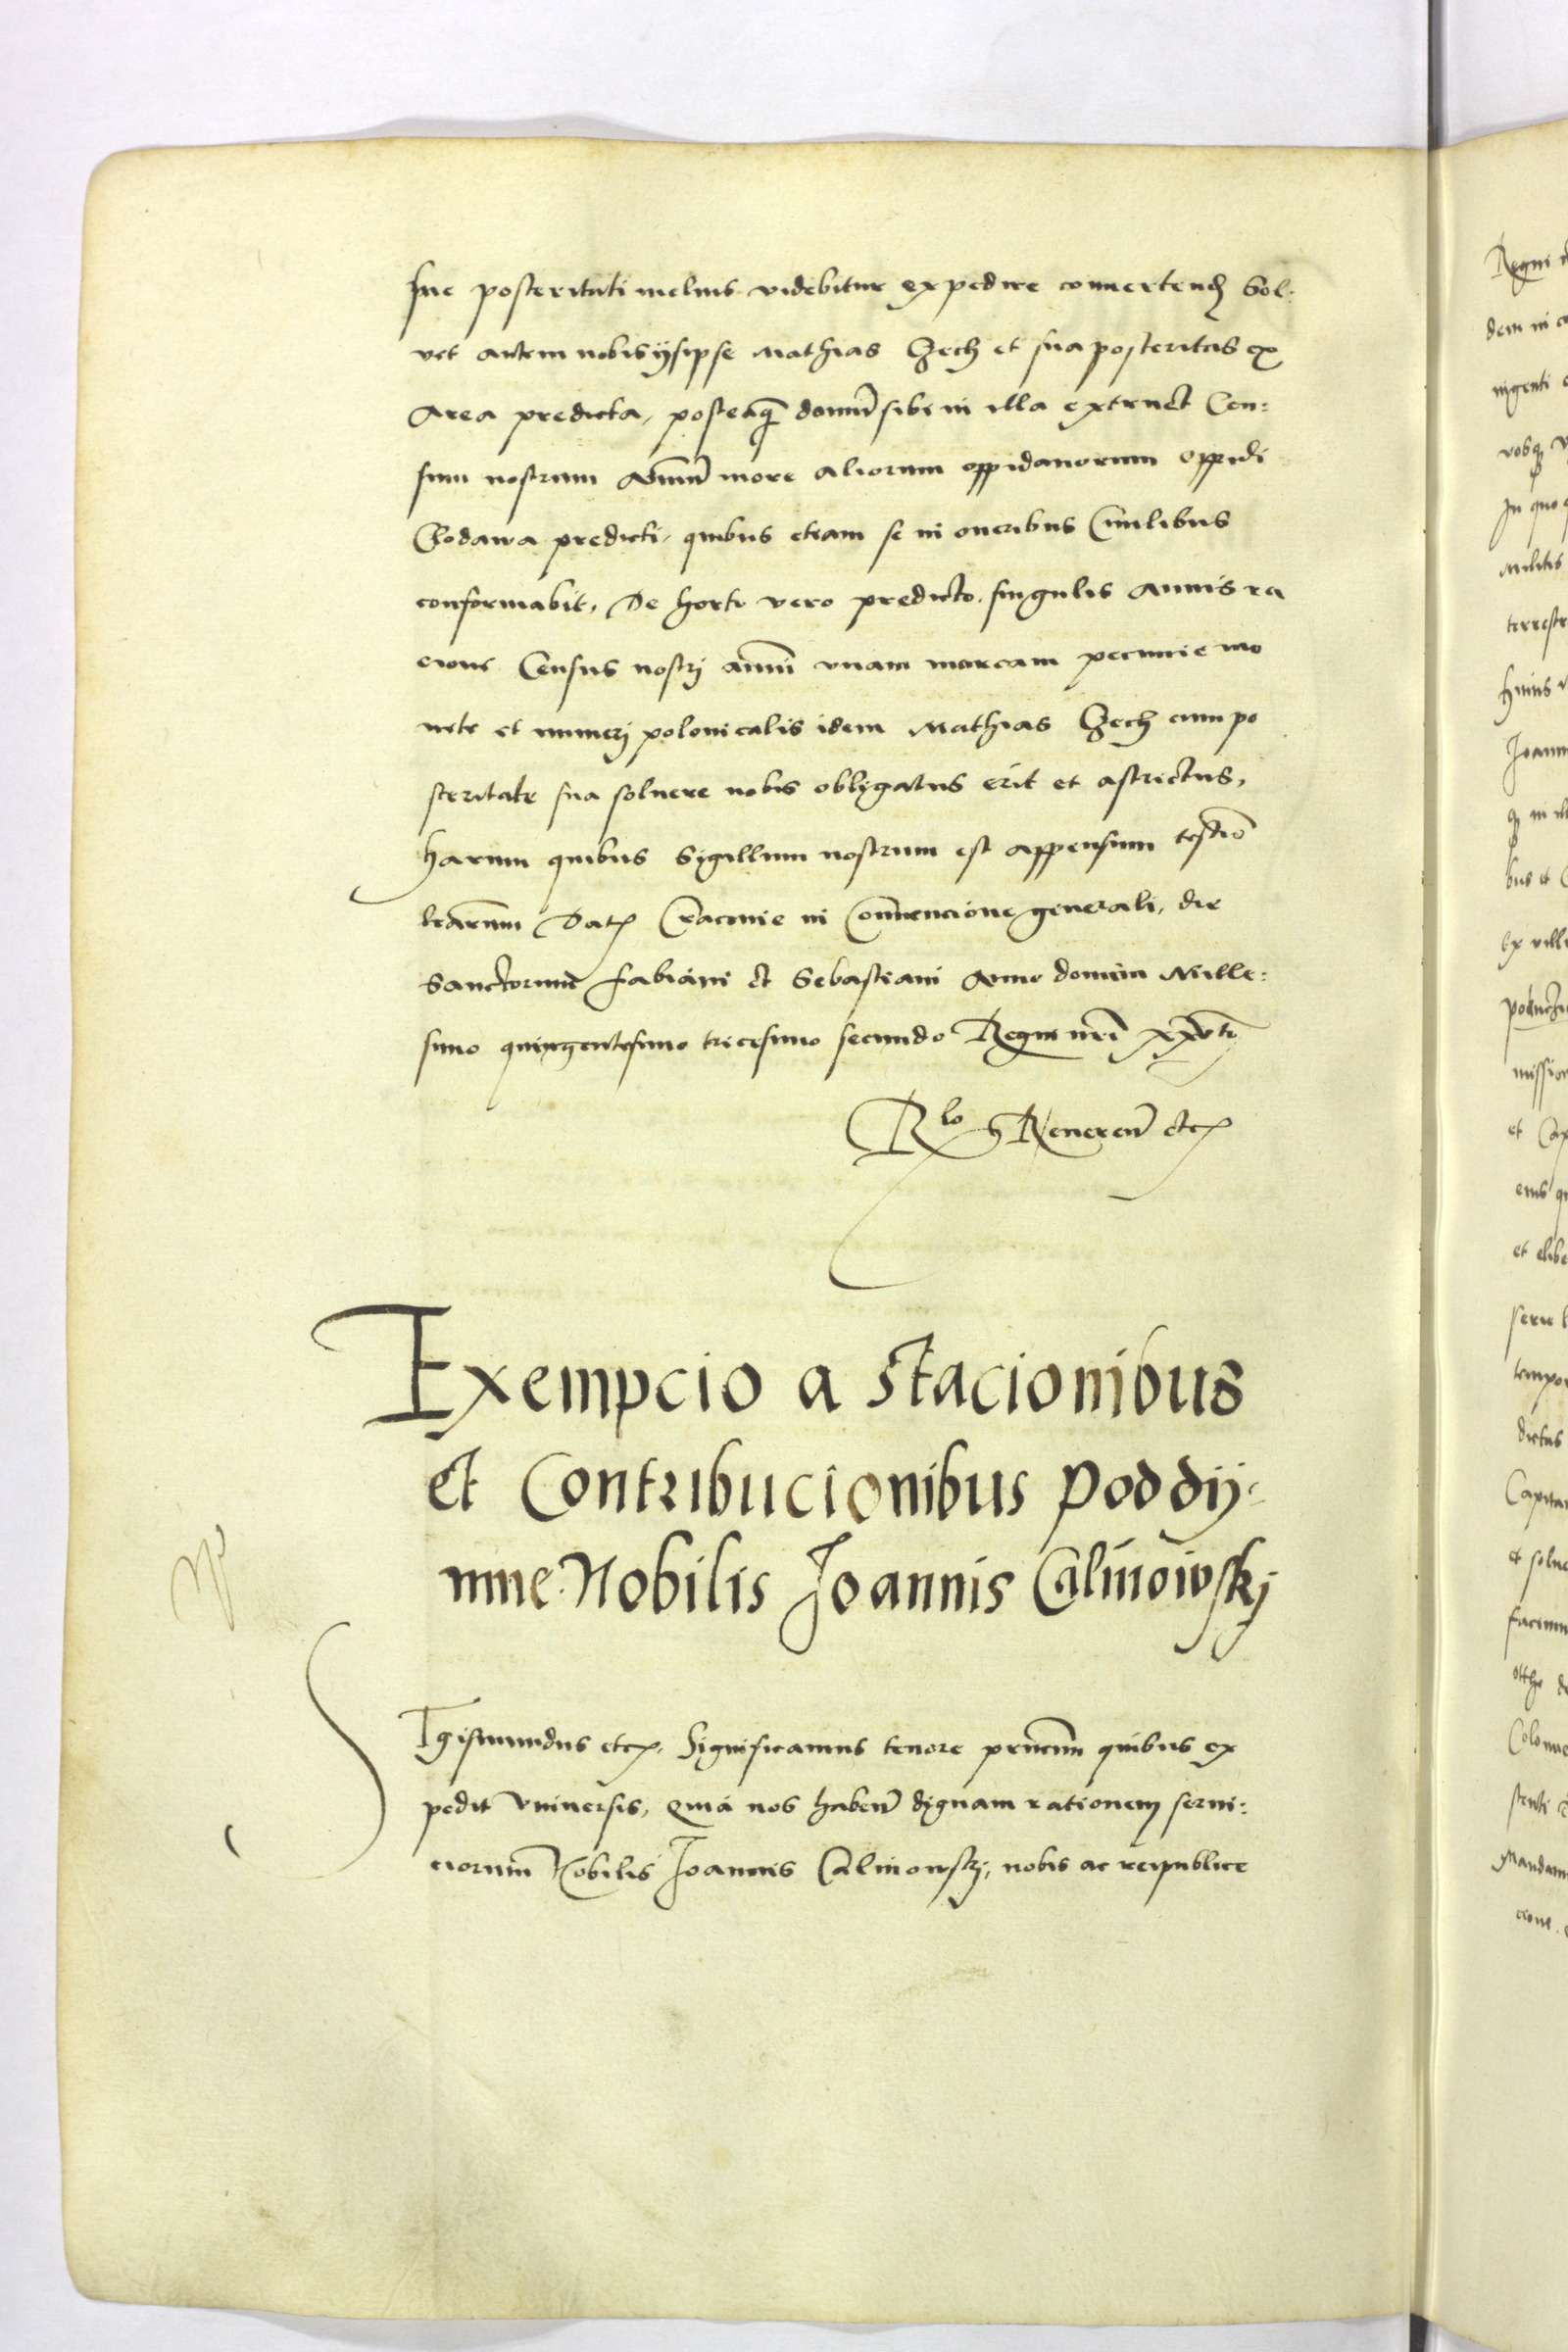 sue posteritati melius videbitur expedire convertend. Sol:
vet autem nobis ijsipse Mathias Czech et sua posteritas ex
Area predicta, posteaq̃ domũ sibi in illa extruct Cen:
sum nostrum Annuũ more aliorum oppidanorum oppidi
Clodawa predicti, quibus etiam se in oneribus Civilibus
conformabit, De horto vero predicto singulis Annis ra
cione Census nostrj annui unam marcam pecunie mo
nete et numerj polonicalis idem Mathias Czech cum po
steritate sua soluere nobis obligatus erit et astrictus,
Harum quibus Sigillum nostrum est appensum testio
l̃rarum Dat. Cracouie in Conuencione generali, die
Sanctorum Fabiani et Sebastiani Anno domini Mille:
simo quingentesimo tricesimo secundo Regni nr̃i xxvto
Rlo Reueren̄ etc.
Exempcio a stacionibus
et Contribucionibus Poddÿ:
mne Nobilis Joannis Calinowskj
Sigismundus etc. Significamus tenore pn̄cium quibus ex
pedit Vniuersis, Quia nos haben̄ dignam rationem serui:
ciorum Nobilis Joannis Calinowskj, nobis ac reipublice
Regni
dem in
ingenti
vobsq
In quo
militis
terrestr
huius
Joann
bus et
Ex vill
missio
et Cap
eius
et
tempo
dictus
Capita
et solu
Mandam
cione